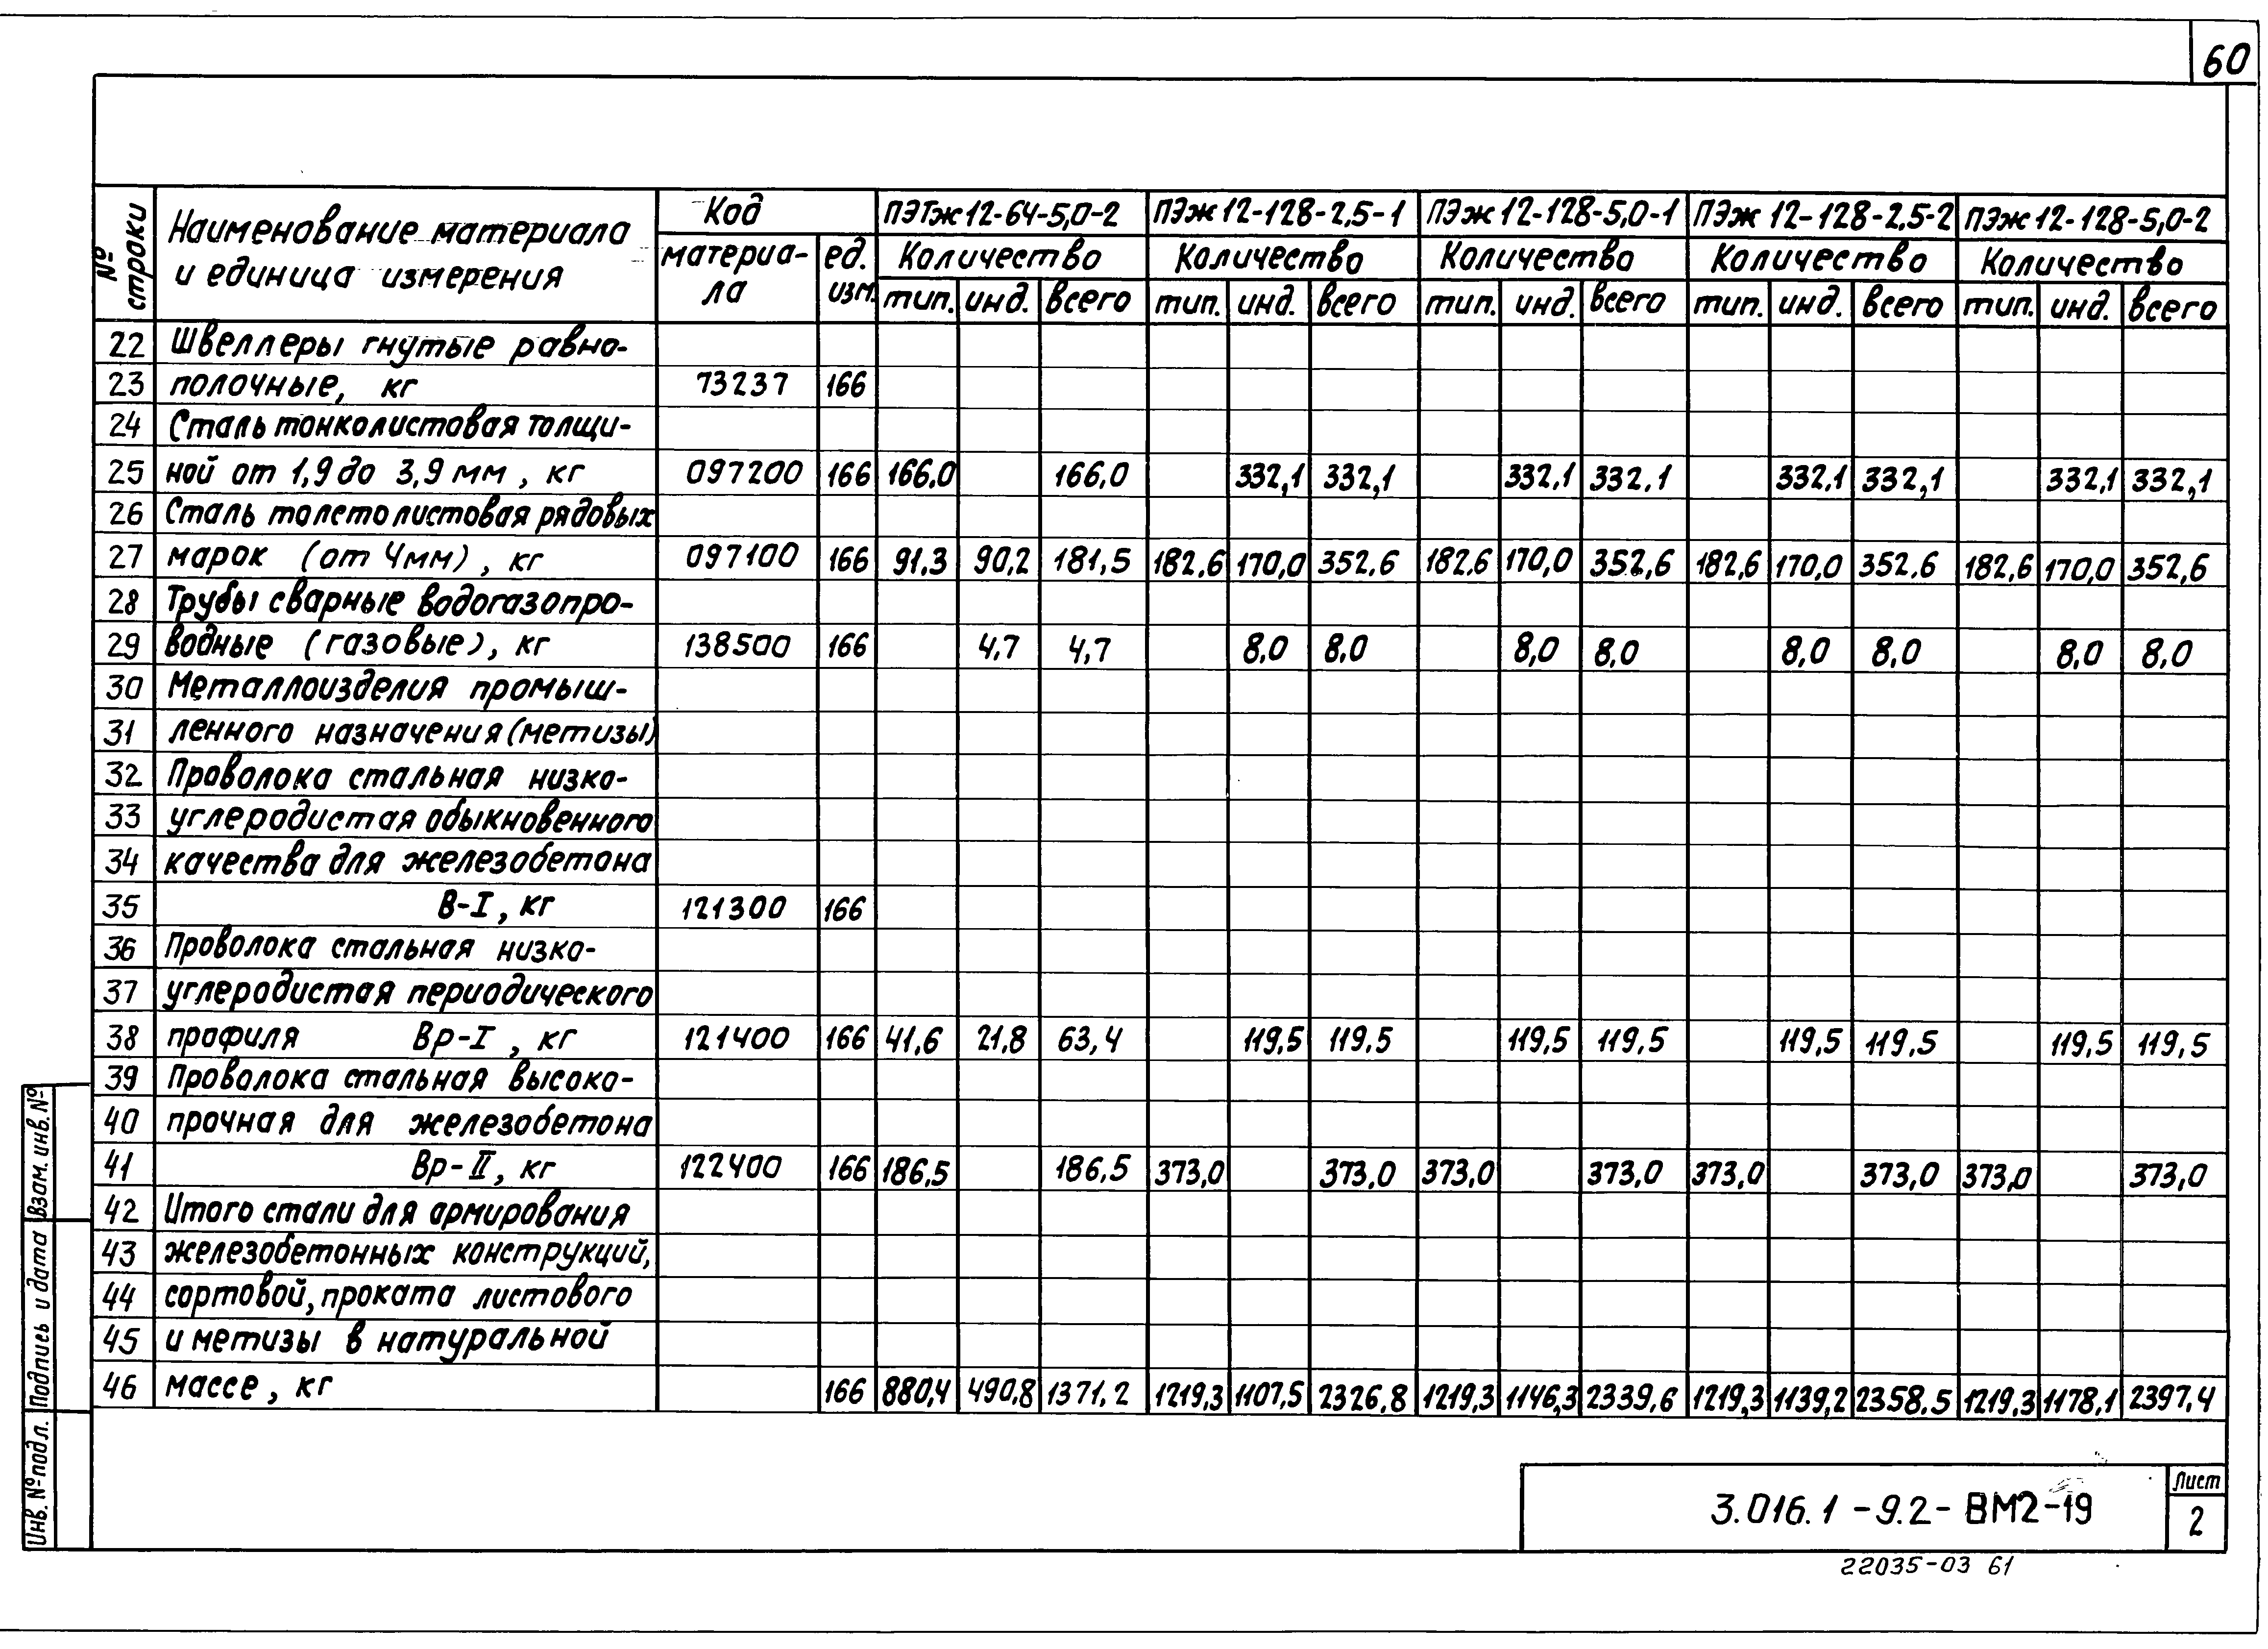 60
№ строки
Наименование материала и единица измерения
Код
материа-ла
ед. изм.
ПЭТж12-64-5,0-2 ПЭж12-128-2,5-1 ПЭж12-128-5,0-1 ПЭж12-128-2,5-2 ПЭж12-128-5,0-2
Количество Количество Количество Количество Количество
тип. инд. всего тип. инд. всего тип. инд. всего тип. инд. всего тип. инд. всего
22 Швеллеры гнутые равно-
23 полочные, кг 73237 166
24 Сталь тонколистовая толщи-
25 ной от 1,9 до 3,9 мм, кг 097200 166 166,0 166,0 332,1 332,1 332,1 332,1 332,1 332,1 332,1 332,1
26 Сталь толстолистовая рядовых
27 марок (от 4мм), кг 097100 166 91,3 90,2 181,5 182,6 170,0 352,6 182,6 170,0 352,6 182,6 170,0 352,6 182,6 170,0 352,6
28 Трубы сварные водогазопро-
29 водные (газовые), кг 138500 166 4,7 4,7 8,0 8,0 8,0 8,0 8,0 8,0 8,0 8,0
30 Металлоизделия промыш-
31 ленного назначения (метизы)
32 Проволока стальная низко-
33 углеродистая обыкновенного
34 качества для железобетона
35 В-I, кг 121300 166
36 Проволока стальная низко-
37 углеродистая периодического
38 профиля Вр-I, кг 121400 166 41,6 21,8 63,4 119,5 119,5 119,5 119,5 119,5 119,5 119,5 119,5
39 Проволока стальная высоко-
40 прочная для железобетона
41 Вр-II, кг 122400 166 186,5 186,5 373,0 373,0 373,0 373,0 373,0 373,0 373,0 373,0
42 Итого стали для армирования
43 железобетонных конструкций,
44 сортовой, проката листового
45 и метизы в натуральной
46 массе, кг 166 880,4 490,8 1371,2 1219,3 1107,5 2326,8 1219,3 1146,3 2339,6 1219,3 1139,2 2358,5 1219,3 1178,1 2397,4
Взам. инв. №
Подпись и дата
Инв. № подл.
3.016.1-9.2-ВМ2-19
Лист
2
22035-03 61